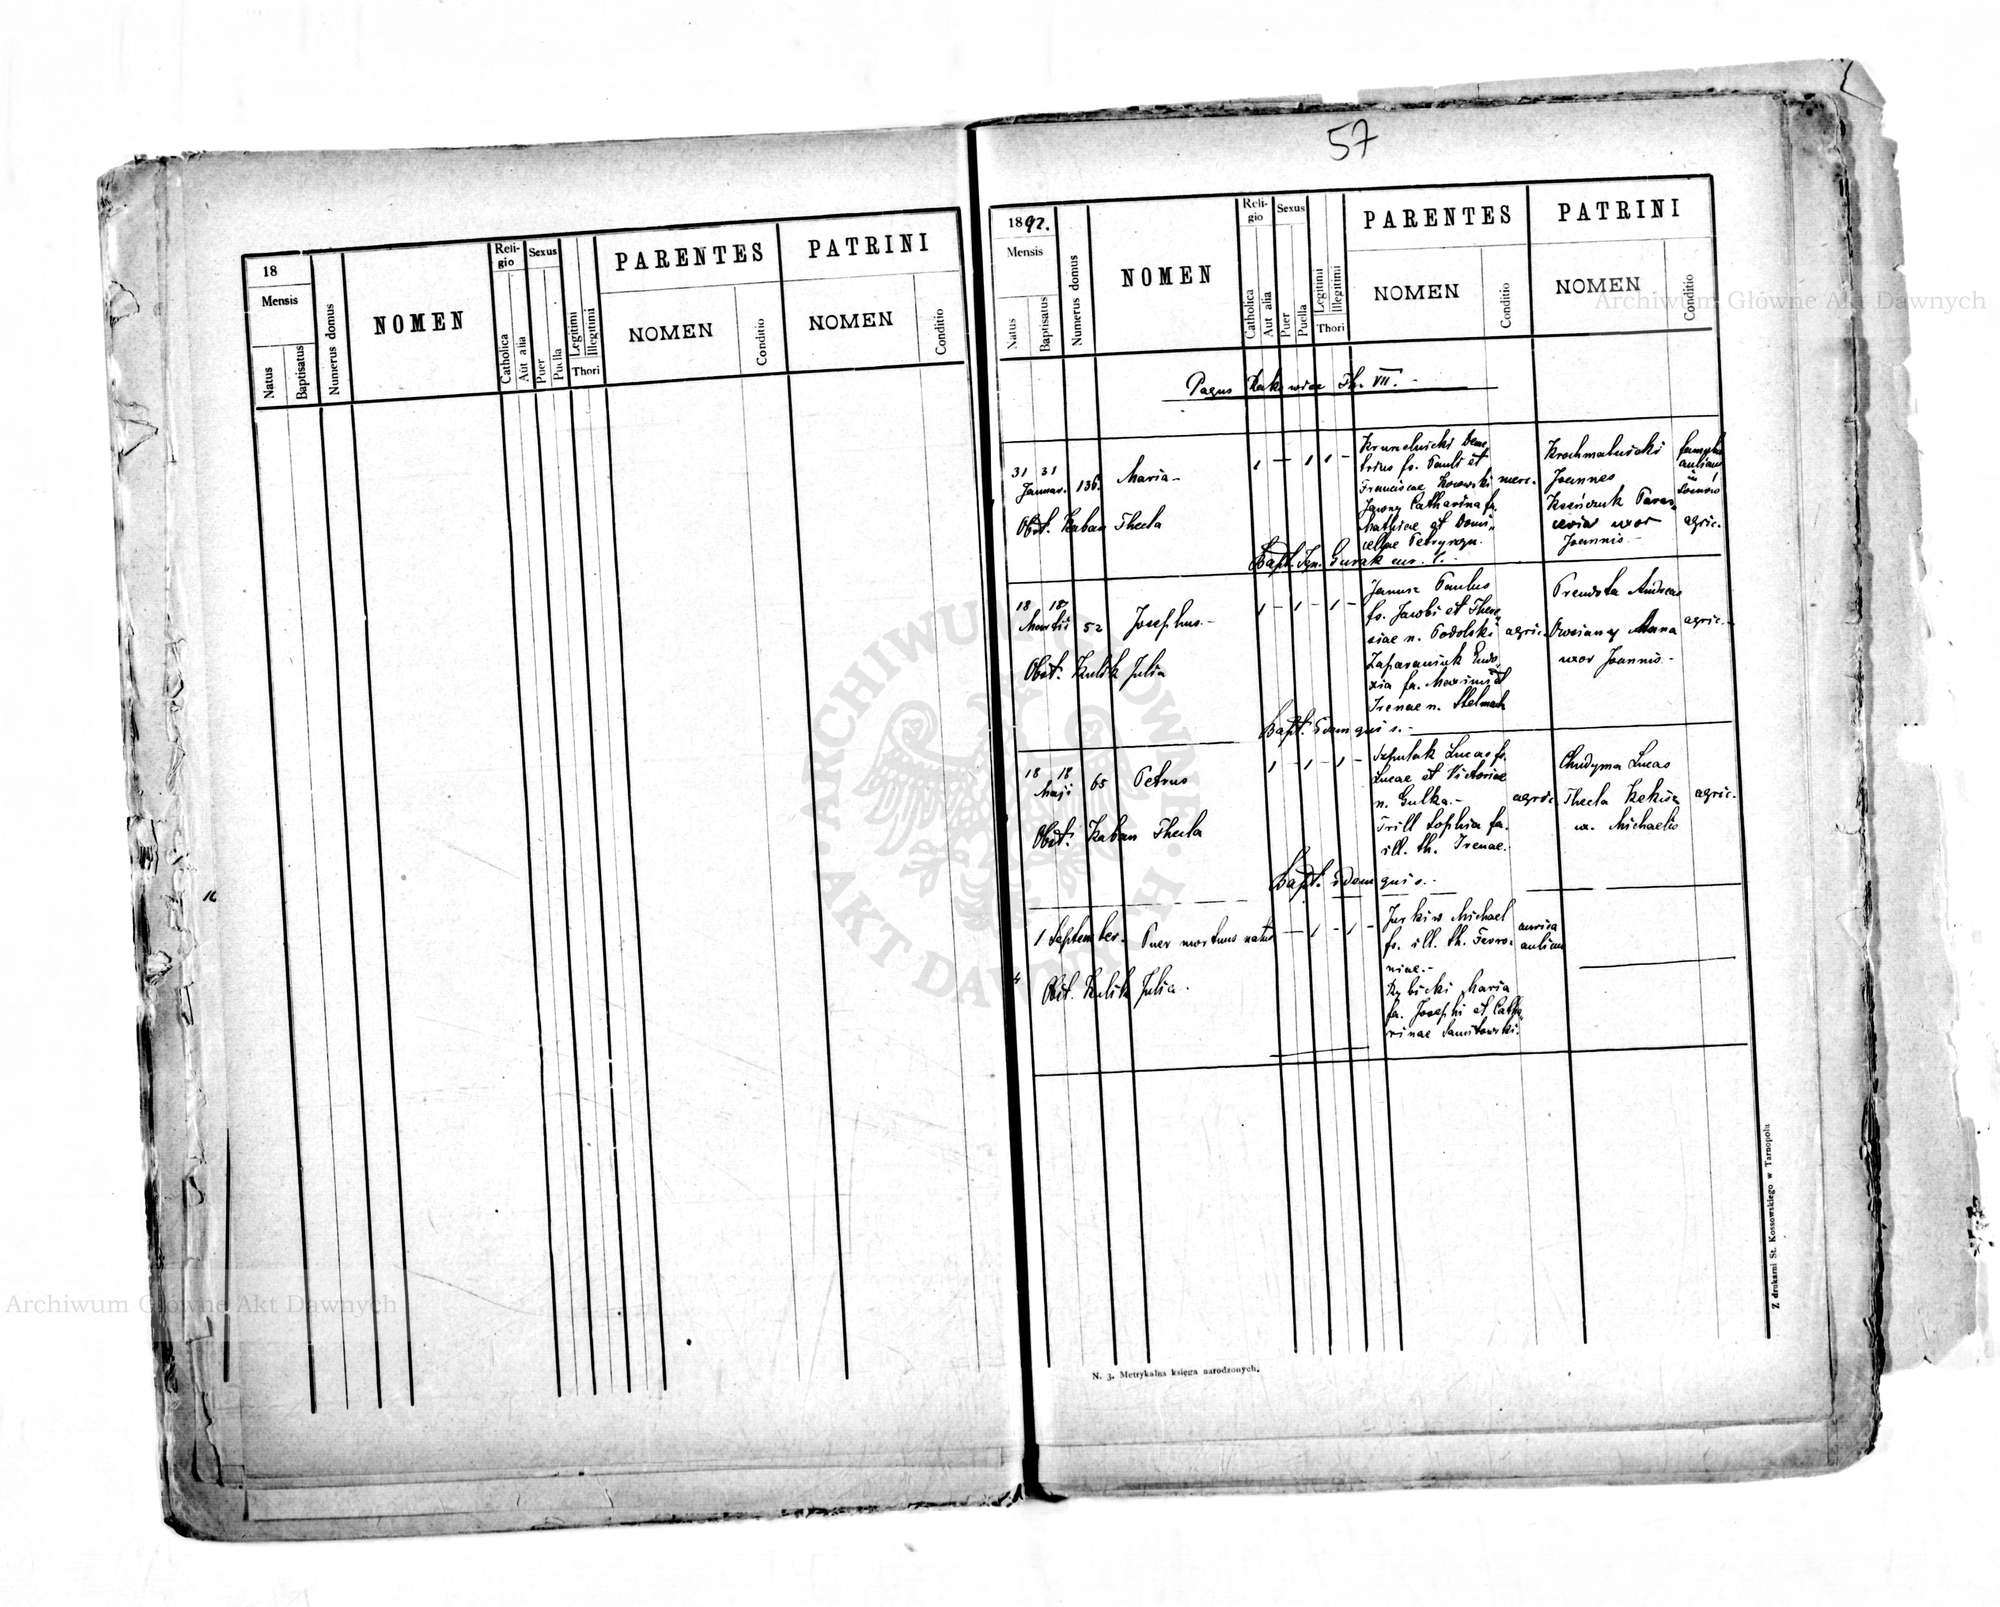 57
18
Mensis
Natus
Baptisatus
Numerus domus
NOMEN
Reli-
gio
Catholica
Aut alia
Sexus
Puer
Puella
Legitimi
Illegitimi
Thori
PARENTES
NOMEN
Conditio
PATRINI
NOMEN
Conditio
1892.
Mensis
Natus
Baptisatus
Numerus domus
NOMEN
Reli-
gio
Catholica
Aut alia
Sexus
Puer
Puella
Legitimi
Illegitimi
Thori
PARENTES
NOMEN
Conditio
PATRINI
NOMEN
Conditio
Pagus Th. VII. -
31 31
Januar. 136. Maria - 1 - 1 1 -
Obst. Kaban Thecla
Deme
trius fs. Pauli et
Franciscae
Catharina fa.
Mathiae et Domi
cellae
merc.
Krochmalnicki
Joannes
uxor
Joannis -
agric.
Bapt. Ign. Gurak cur. l. -
18 18
Martii 52 Josephus. - 1 - 1 - 1 -
Obst. Kulik Julia
Janusz Paulus
fs. Jacobi et There
siae n. Podolski
Eudo
xia fa. Maximi et
Irenae n. Stelmach
agric.
Prendota Andreas
Anna
uxor Joannis -
agric. -
Bapt. idem qui s. -
18 18
Maji 65 Petrus 1 - 1 - 1 -
Obst. Kaban Thecla
Szpulak Lucas fs.
Lucae et Victoriae
n. Gulka. -
Trill Sophia fa.
ill. th. Irenae. -
agric.
Chudyma Lucas
Thecla
ux. Michaelis
agric.
Bapt. idem qui s. -
1 September. Puer mortuus natus - 1 - 1 -
Obst. Kulik Julia -
Jurkiw Michael
fs. ill. th. Fevro
niae. -
Rybicki Maria
fa. Josephi et Catha
rinae
Z drukarni St. Kossowskiego w Tarnopolu
N. 3. Metrykalna księga narodzonych.
ARCHIWUM GŁÓWNE
AKT DAWNYCH
Archiwum Główne Akt Dawnych
Archiwum Główne Akt Dawnych